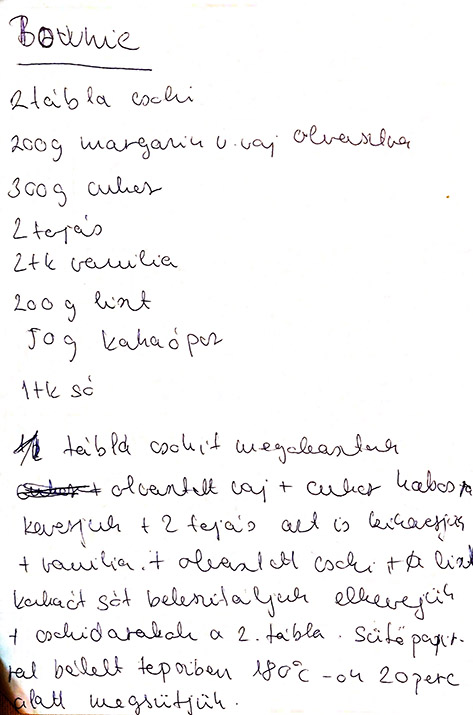 Bownie
2 tábla csoki
200g margarin v. vaj olvasztva
300g cukor
2 tojás
2 tk vanilia
200 g liszt
50g kakaópor
1 tk só
1 tábla csokit megolvasztunk
+ olvasztott vaj + cukor habosra
keverjük + 2 tojás azt is kikeverjük
+ vanilia. + olvasztott csoki + a liszt
kakaót sót beleszitáljuk elkeverjük
+ csokidarabok a 2. tábla. Sütőpapir-
ral bélelt tepsiben 180°C -on 20 perc
alatt megsütjük.